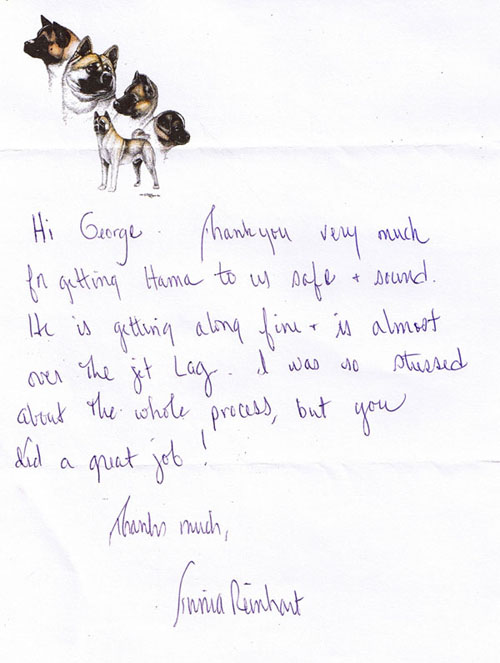 Hi George. Thank you very much
for getting Hama to us safe + sound.
He is getting along fine + is almost
over the jet Lag. I was so stressed
about the whole process, but you
did a great job!
Thanks much,
Reinhart